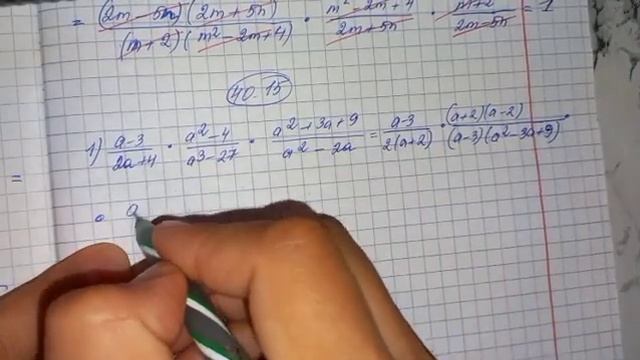 = (2m-5n)(2m+5n) / (m+2)(m²-2m+4) · m²-2m+4 / 2m+5n · m+2 / 2m-5n = 1
40.15
1) a-3 / 2a+4 · a²-4 / a³-27 · a²+3a+9 / a²-2a = a-3 / 2(a+2) · (a+2)(a-2) / (a-3)(a²-3a+9) ·
=
· a